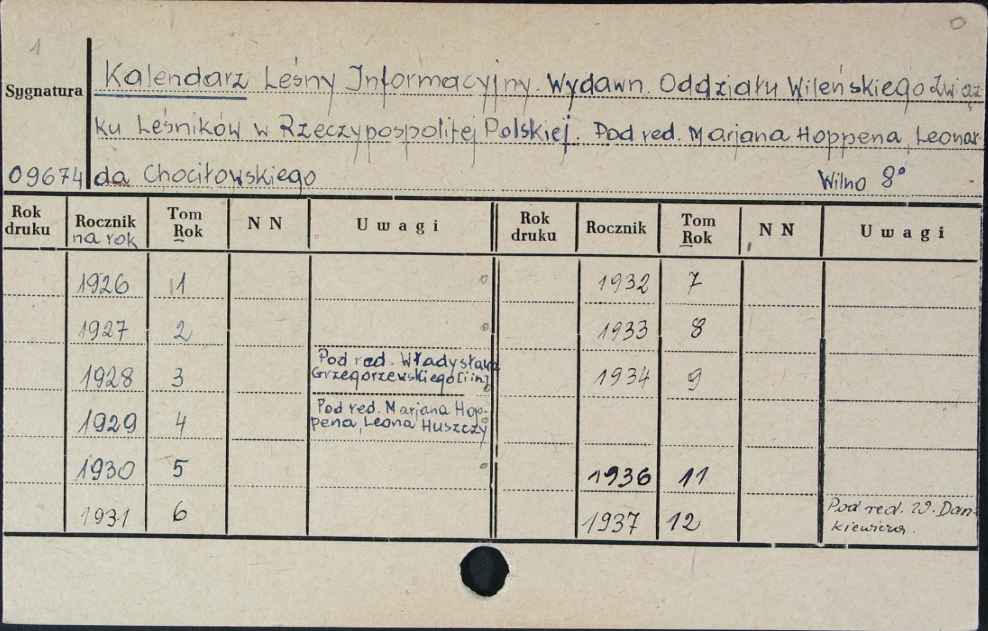 1
Kalendarz Leśny Informacyjny. Wydawn. Oddziału Wileńskiego Związ
Sygnatura
ku Leśników w Rzeczypospolitej Polskiej. Pod red. Marjana Hoppena, Leonar
09674 da Chociłowskiego Wilno 8°
Rok druku Rocznik na rok Tom Rok N N Uwagi Rok druku Rocznik Tom Rok N N Uwagi
1926 1 1932 7
1927 2 1933 8
1928 3 Pod red. Władysława Grzegorzewskiego [i in.] 1934 9
1929 4 Pod red. Marjana Hoppena, Leona Huszczy
1930 5 1936 11
1931 6 1937 12 Pod red. W. Dankiewicza.